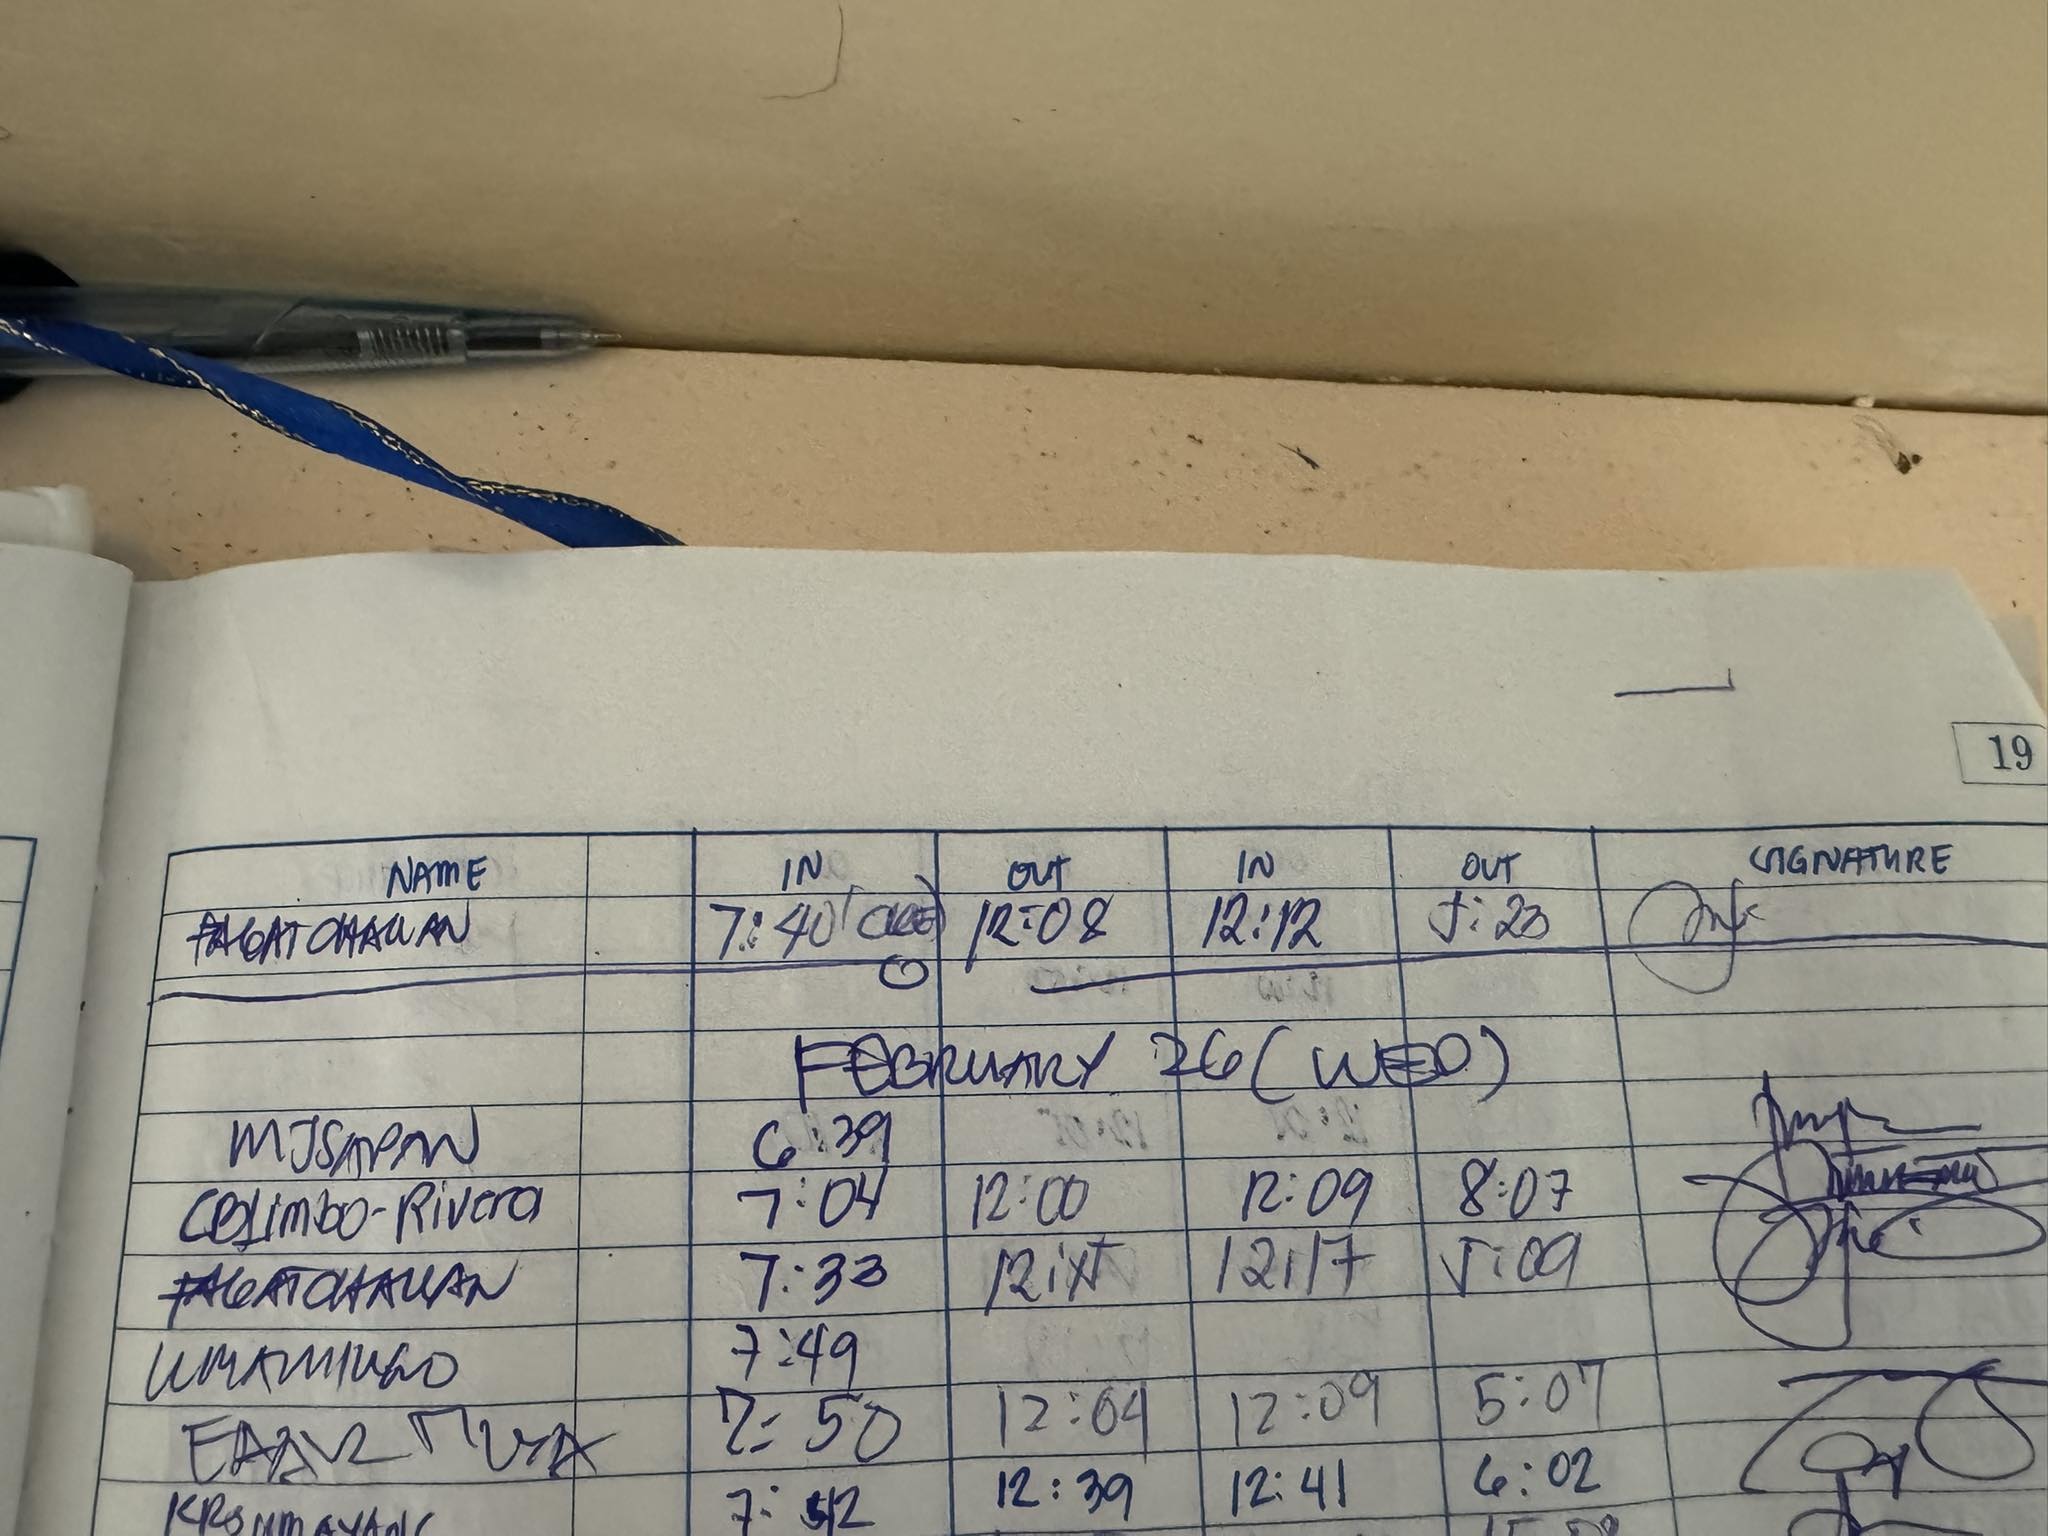 19
NAME IN OUT IN OUT SIGNATURE
PAGATCHAWAN 7:40 12:08 12:12 5:23
FEBRUARY 26 (WED)
MJSAPAN 6:39
CBLimbo-Rivera 7:04 12:00 12:09 8:07
PAGATCHAWAN 7:33 12:17 5:09
7:49
7:50 12:04 12:09 5:07
12:39 12:41 6:02